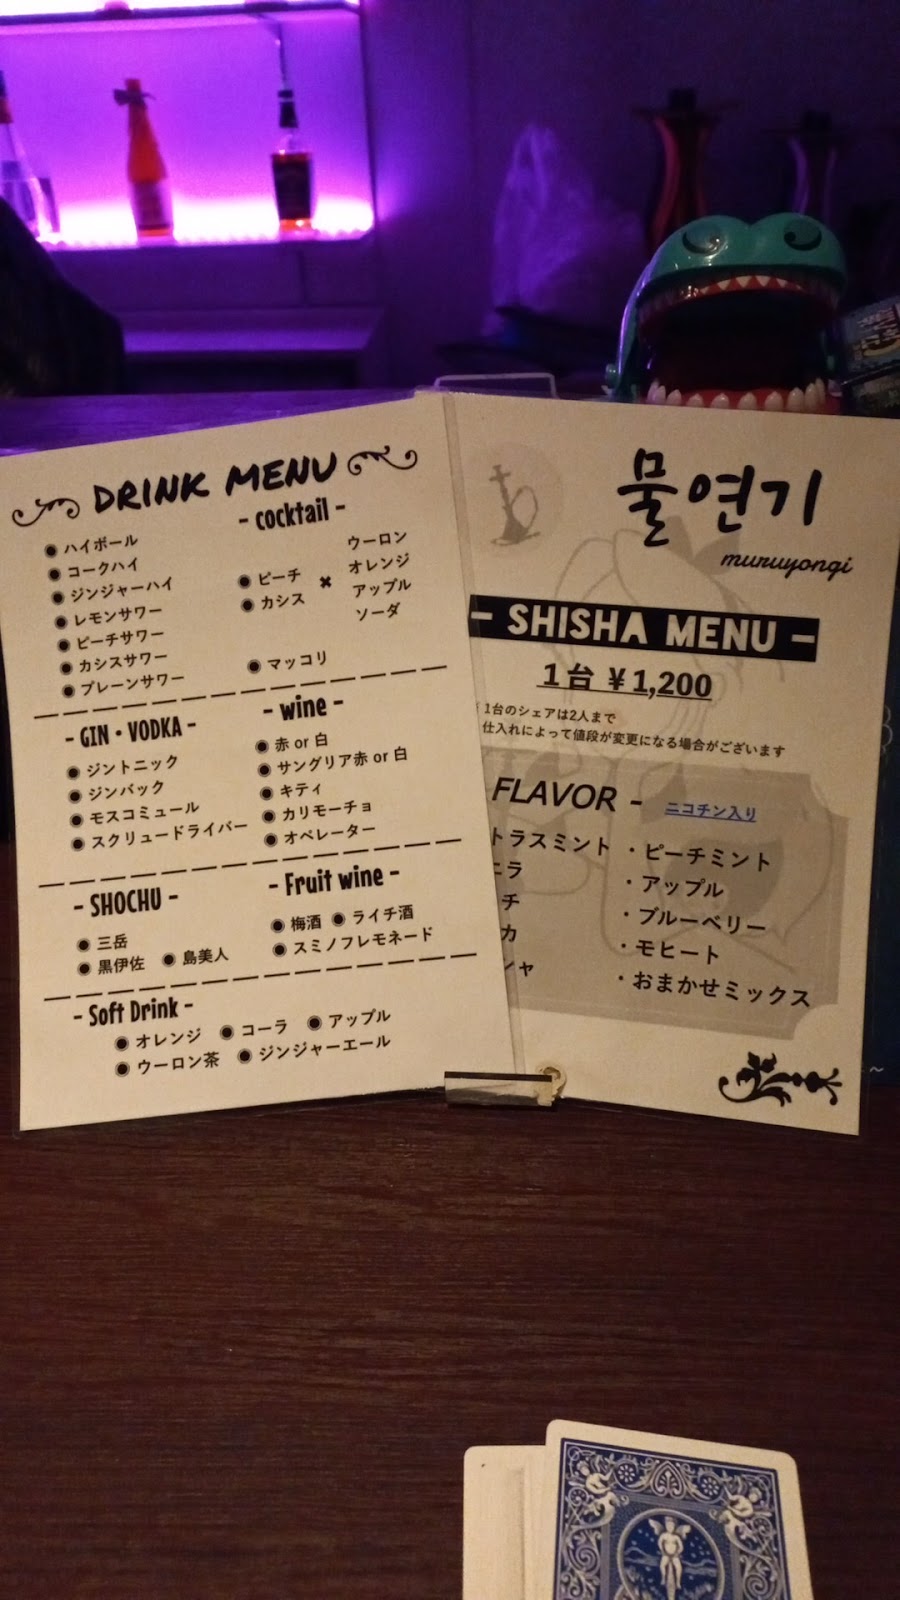 DRINK MENU
ハイボール
コークハイ
ジンジャーハイ
レモンサワー
ピーチサワー
カシスサワー
プレーンサワー
- cocktail -
ピーチ
カシス
×
ウーロン
オレンジ
アップル
ソーダ
マッコリ
- GIN・VODKA -
ジントニック
ジンバック
モスコミュール
スクリュードライバー
- wine -
赤 or 白
サングリア赤 or 白
キティ
カリモーチョ
オペレーター
- SHOCHU -
三岳
黒伊佐 島美人
- Fruit wine -
梅酒 ライチ酒
スミノフレモネード
- Soft Drink -
オレンジ コーラ アップル
ウーロン茶 ジンジャーエール
물연기
muruyongi
- SHISHA MENU -
1台 ¥1,200
1台のシェアは2人まで
仕入れによって値段が変更になる場合がございます
FLAVOR -
ニコチン入り
トラスミント
ニラ
チ
カ
シャ
・ピーチミント
・アップル
・ブルーベリー
・モヒート
・おまかせミックス